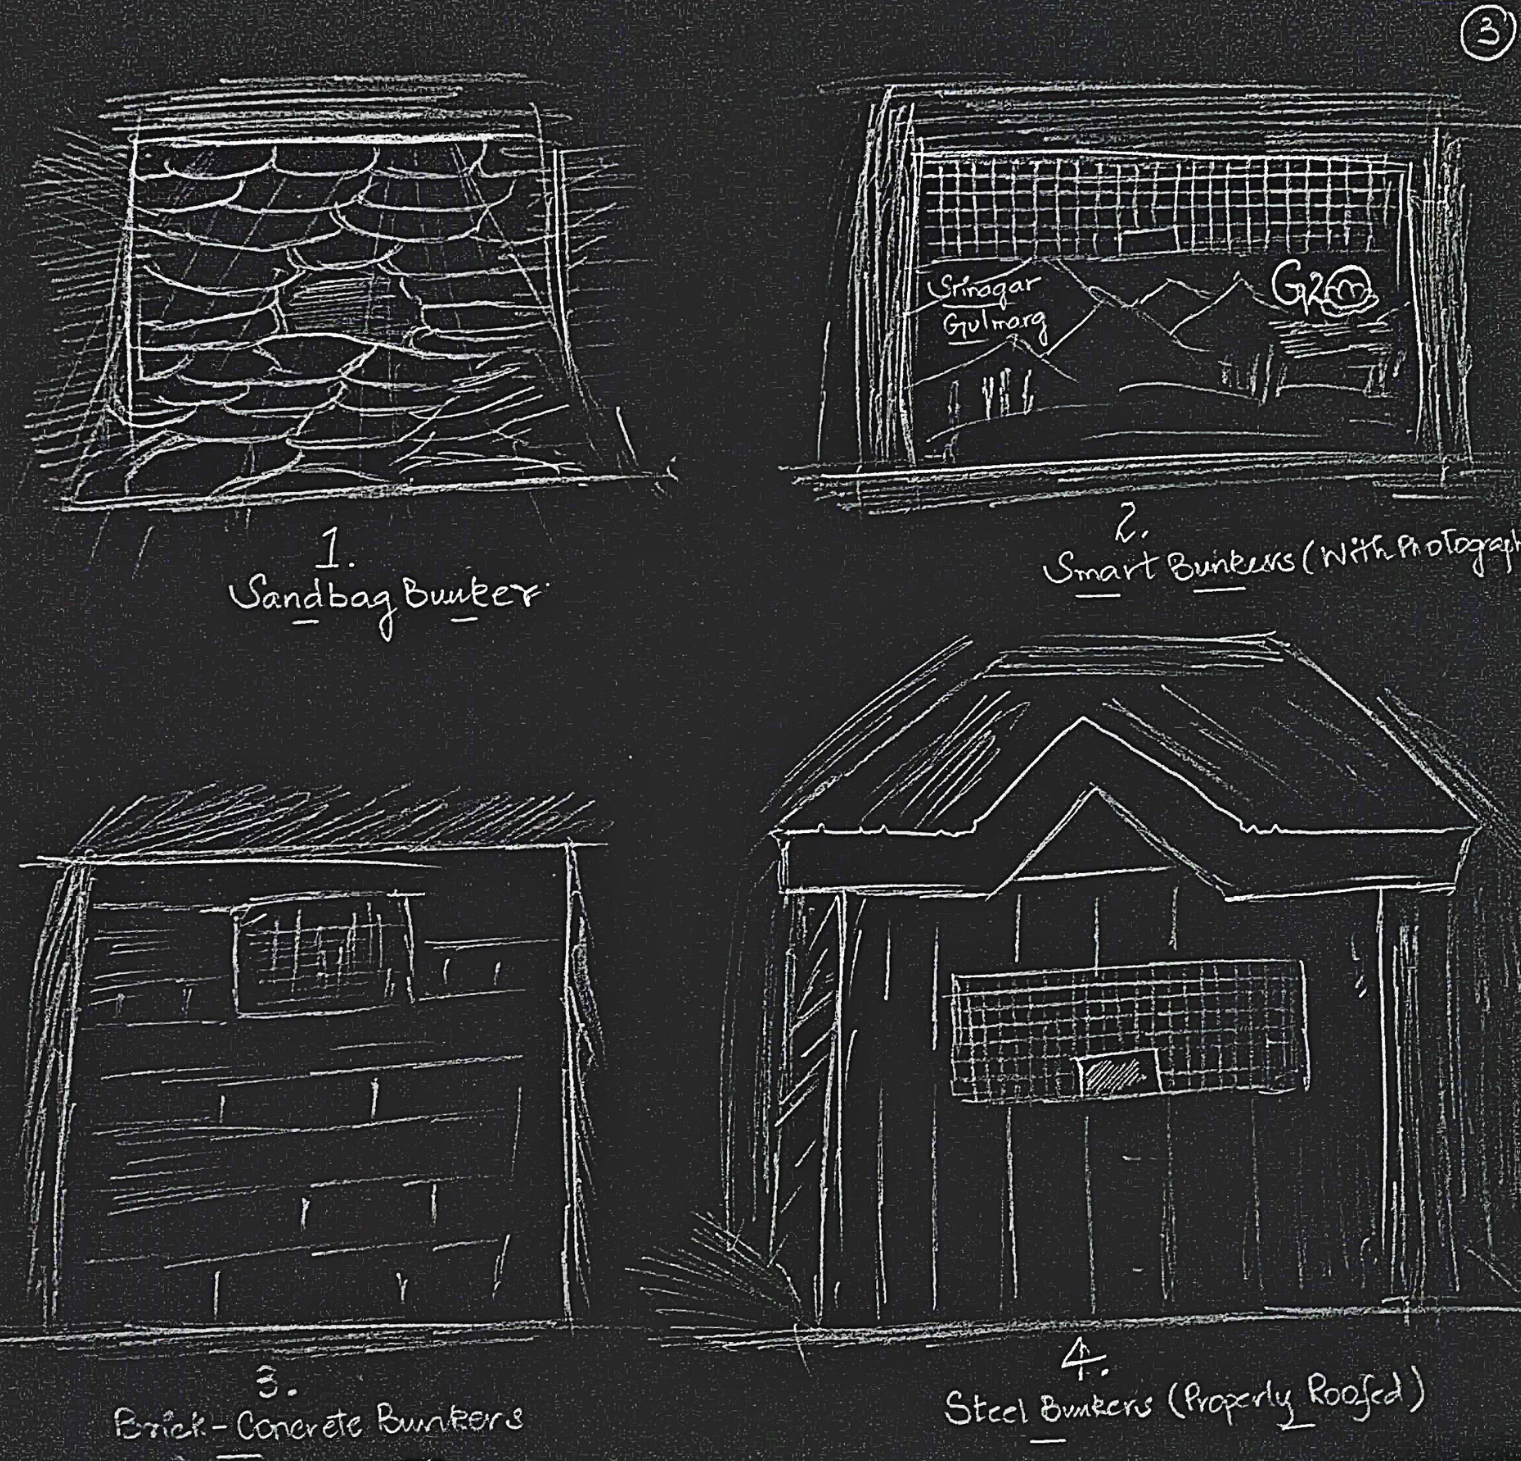 3
Srinagar
Gulmarg
G20
1.
Sandbag Bunker
2.
Smart Bunkers (With Photograph
3.
Brick-Concrete Bunkers
4.
Steel Bunkers (Properly Roofed)